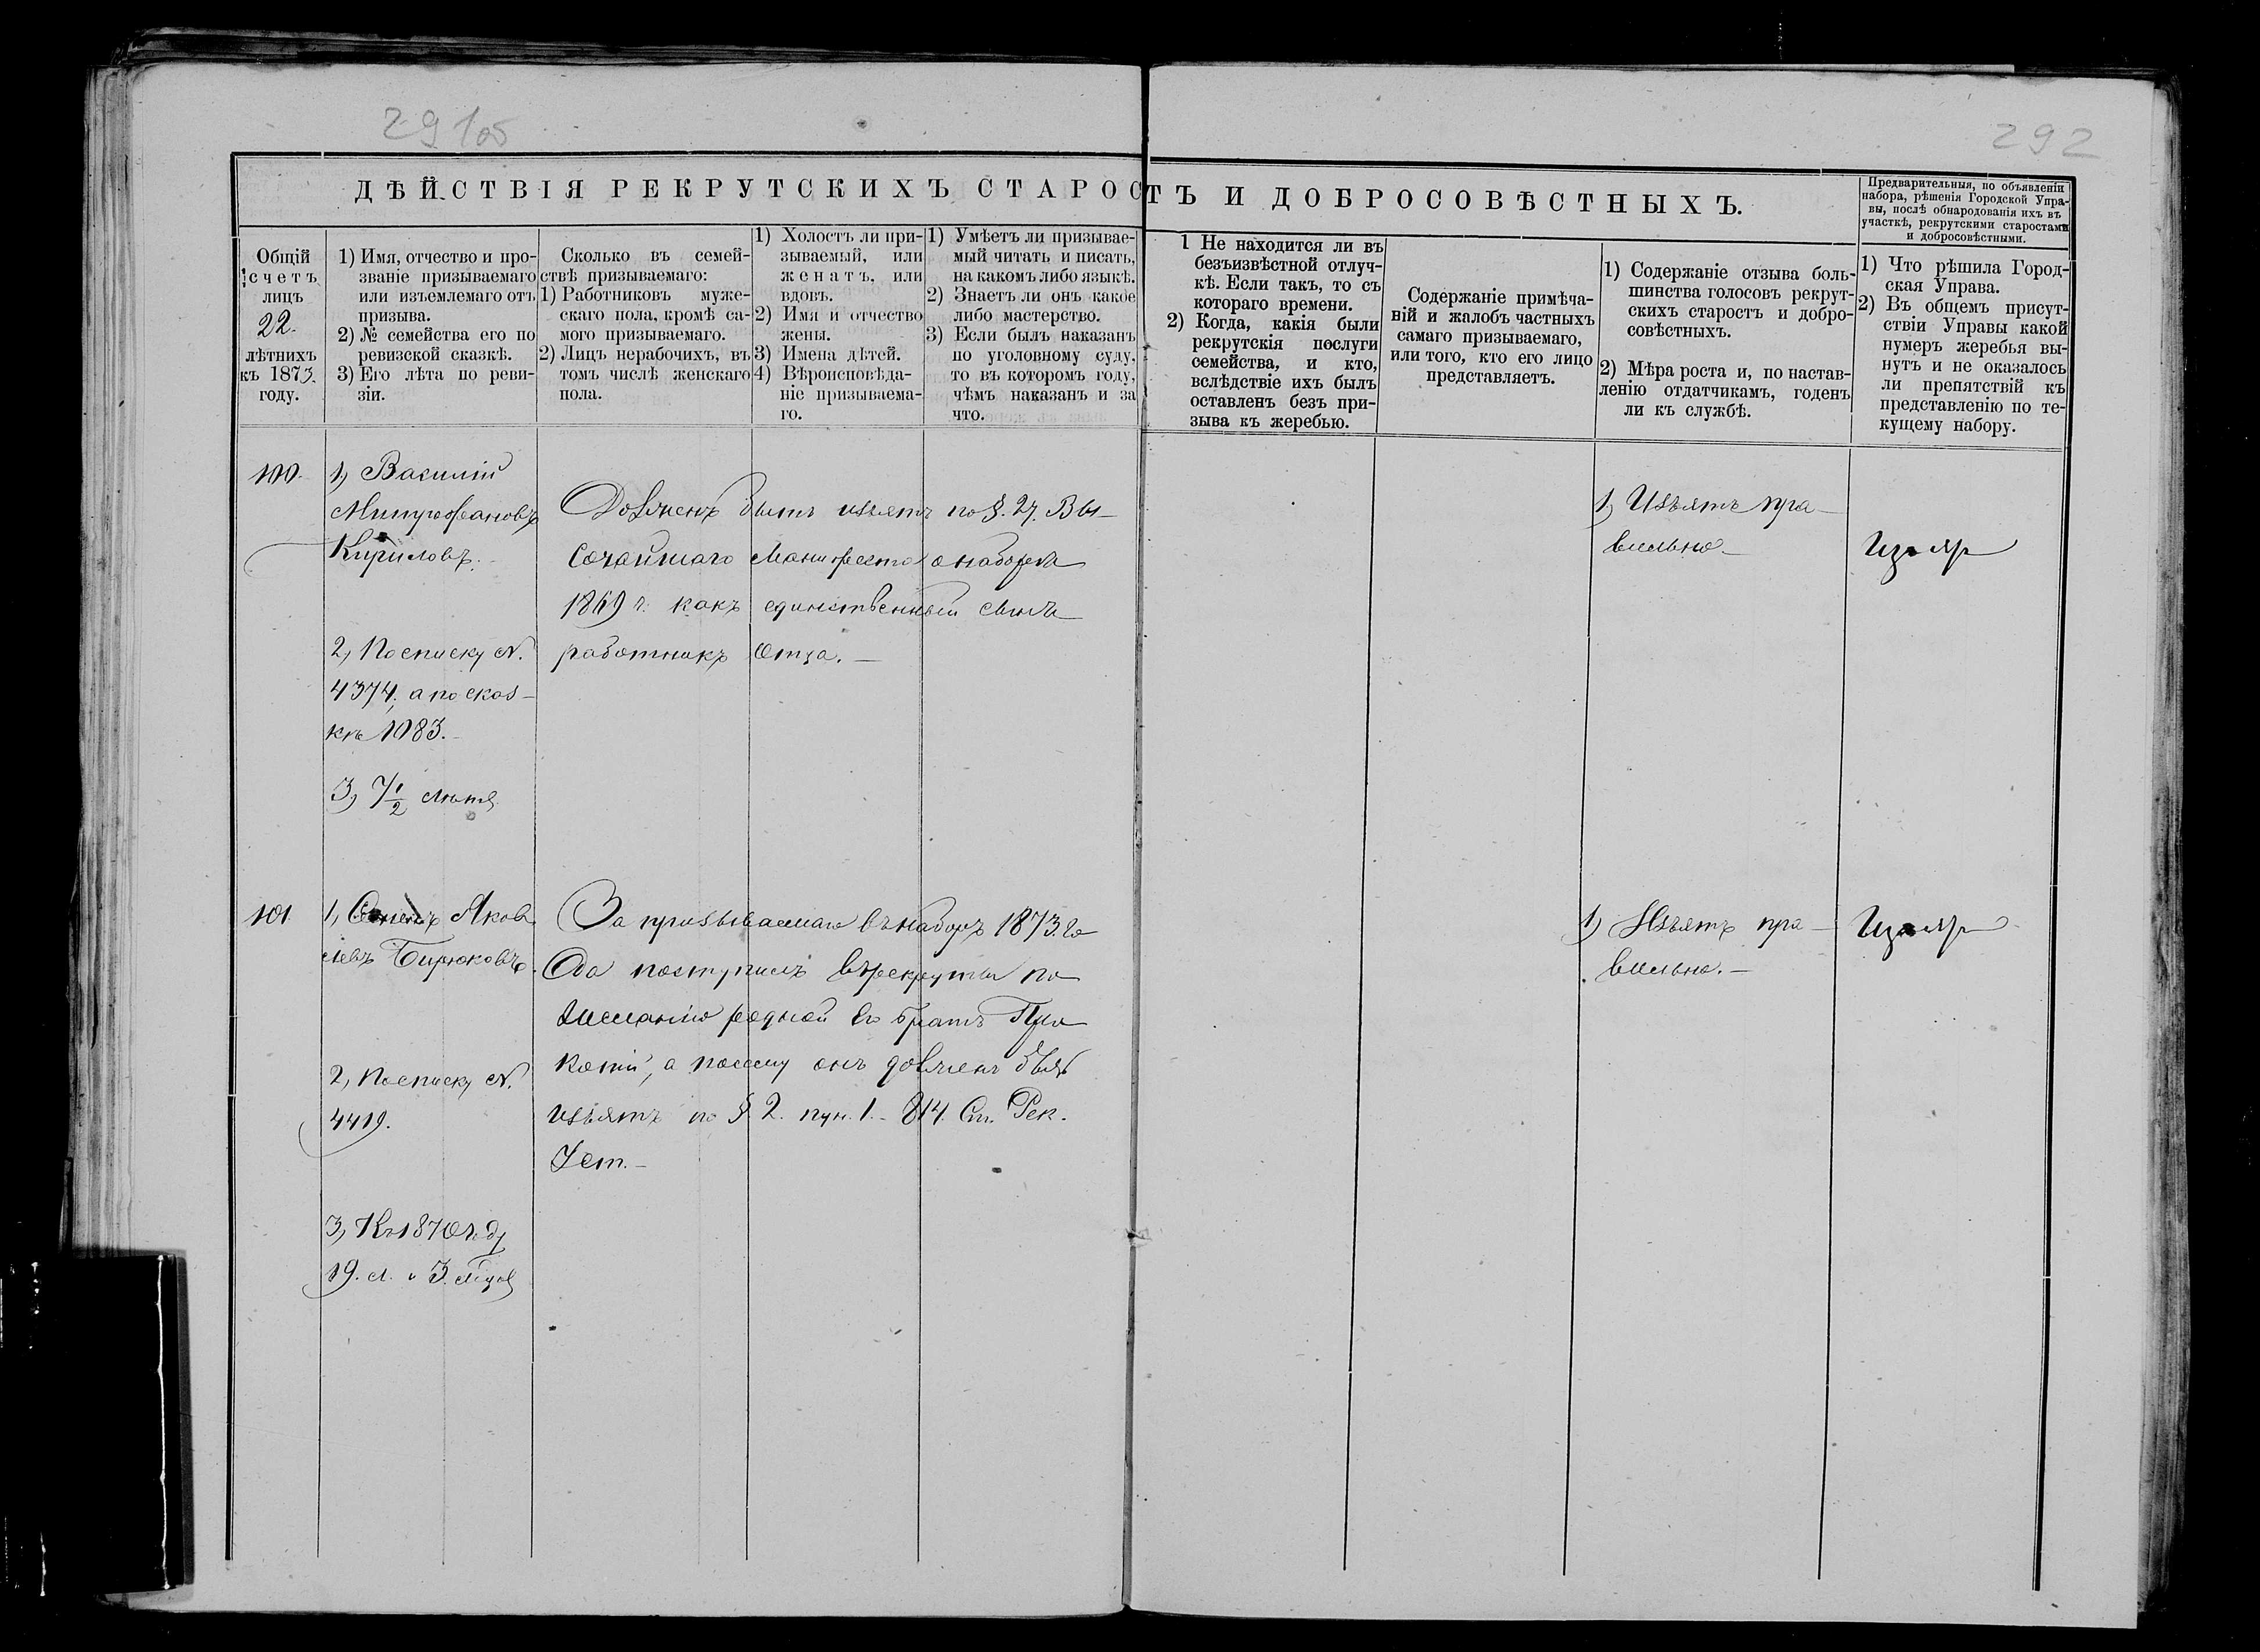 291об
292
ДѢЙСТВІЯ РЕКРУТСКИХЪ СТАРОСТЪ И ДОБРОСОВѢСТНЫХЪ.
Предварительныя, по объявленіи
набора, рѣшенія Городской Упра-
вы, послѣ обнародованія ихъ въ
участкѣ, рекрутскими старостами
и добросовѣстными.
Общій
счетъ
лицъ
22.
лѣтнихъ
къ 1873.
году.
1) Имя, отчество и про-
званіе призываемаго
или изъемлемаго отъ
призыва.
2) № семейства его по
ревизской сказкѣ.
3) Его лѣта по реви-
зіи.
Сколько въ семей-
ствѣ призываемаго:
1) Работниковъ муже-
скаго пола, кромѣ са-
мого призываемаго.
2) Лицъ нерабочихъ, въ
томъ числѣ женскаго
пола.
1) Холостъ ли при-
зываемый, или
женатъ, или
вдовъ.
2) Имя и отчество
жены.
3) Имена дѣтей.
4) Вѣроисповѣда-
ніе призываема-
го.
1) Умѣетъ ли призывае-
мый читать и писать,
на какомъ либо языкѣ.
2) Знаетъ ли онъ какое
либо мастерство.
3) Если былъ наказанъ
по уголовному суду,
то въ которомъ году,
чѣмъ наказанъ и за
что.
1 Не находится ли въ
безъизвѣстной отлуч-
кѣ. Если такъ, то съ
котораго времени.
2) Когда, какія были
рекрутскія послуги
семейства, и кто,
вслѣдствіе ихъ былъ
оставленъ безъ при-
зыва къ жеребью.
Содержаніе примѣча-
ній и жалобъ частныхъ
самаго призываемаго,
или того, кто его лицо
представляетъ.
1) Содержаніе отзыва боль-
шинства голосовъ рекрут-
скихъ старостъ и добро-
совѣстныхъ.
2) Мѣра роста и, по настав-
ленію отдатчикамъ, годенъ
ли къ службѣ.
1) Что рѣшила Город-
ская Управа.
2) Въ общемъ присут-
ствіи Управы какой
нумеръ жеребья вы-
нутъ и не оказалось
ли препятствій къ
представленію по те-
кущему набору.
100.
1, Василій
Митрофановъ
Кириловъ.
2, По списку N.
4374, а по сказ-
кѣ 1083.
3, 7 1/2 лѣтъ
Долженъ быть изъятъ по §. 27. Вы-
сочайшаго Манифеста о наборѣ
1869 г. какъ единственный сынъ
работникъ отца.
1, Изъятъ пра-
вильно
Изъят
101
1, Семенъ Яков
левъ Бирюковъ.
2, По списку N.
4419.
3, Къ 1870 году
19. л. и 3. мѣс
За призываемаго въ наборъ 1873. го
да поступилъ въ рекруты по
желанію родной его братъ Про
кофій, а посему онъ долженъ быть
изъятъ по § 2. пун. 1. - 814. Ст. Рек.
Уст.
1) Изъятъ пра-
вильно.
Изъят